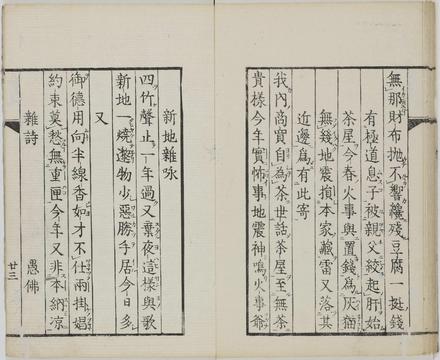 無那財布抛不響纔殘豆腐一挺錢
有極道息子被親父絞起肝始
茶屋今春火事與置錢爲灰猫
無幾地震損本家藏雷又落其
近邊爲有此寄
我內商賣自爲茶世話茶屋至無茶
貴樣今年實怖事地震神鳴火事爺
新地雜咏
四竹聲止一年過又棄夜這樣與歌
新地一燒遊物少惡勝手居今日多
又
御德用向半線香如才不仕兩掛娼
約束莫愁無重匣今年又非本納涼
雜詩 愚佛
廿三